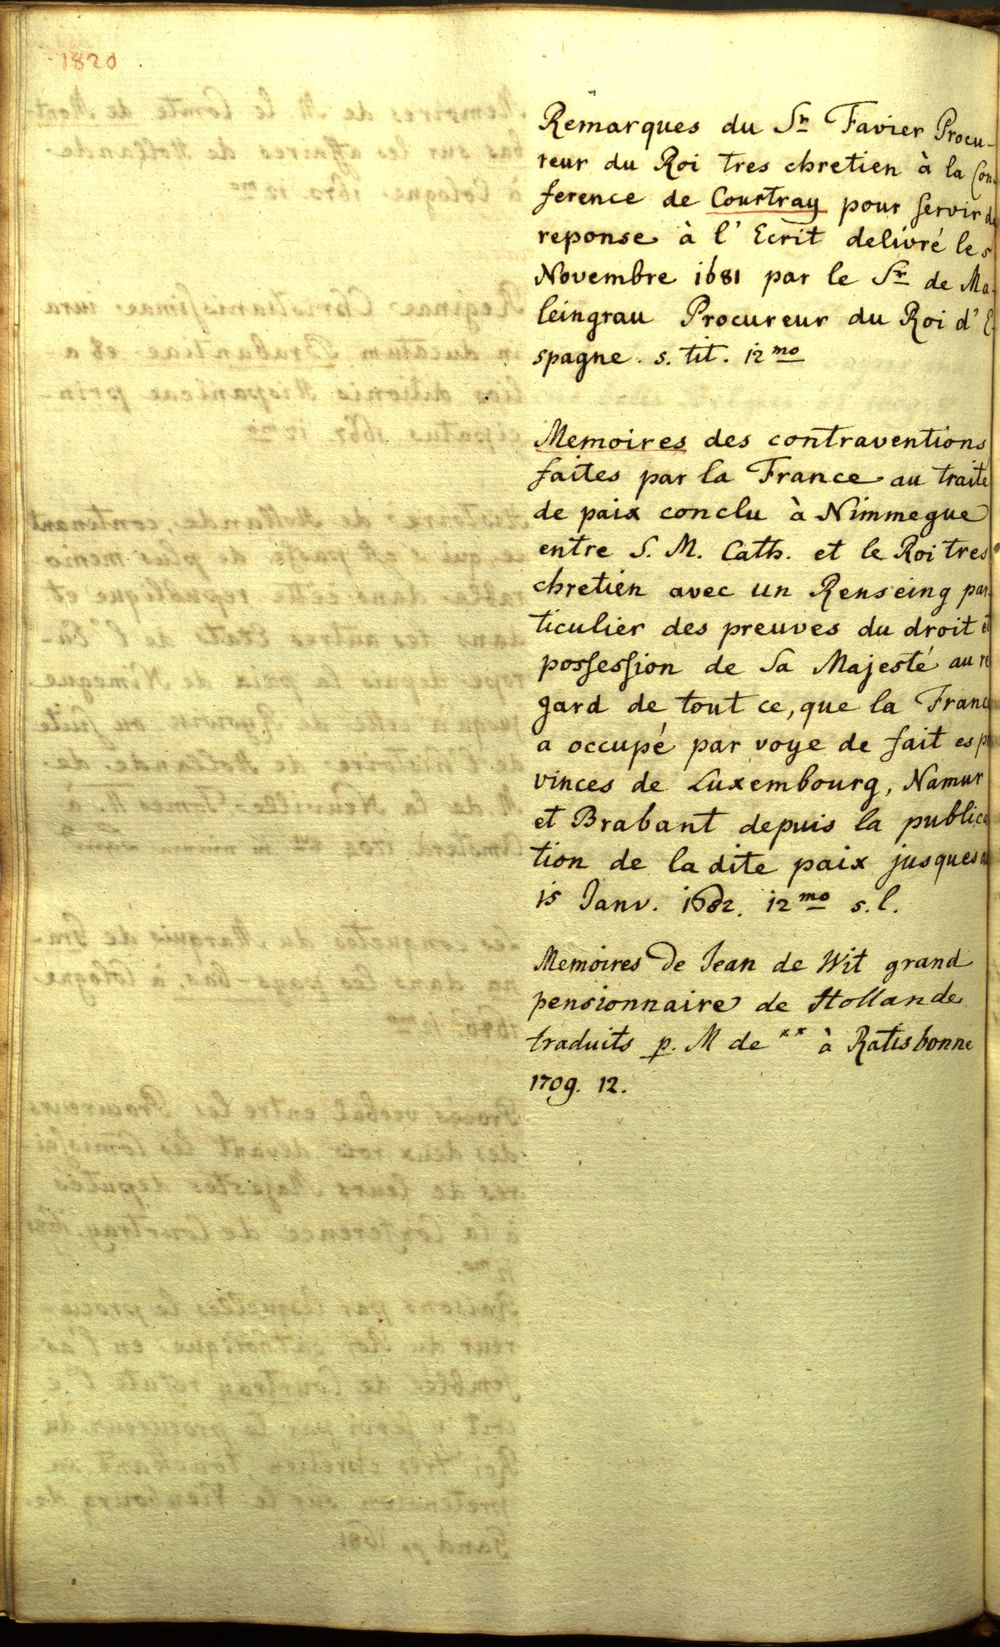 1820
Remarques du Sr Favier Procu-
reur du Roi tres chretien à la Con-
ference de Courtray pour servir de
reponse à l' Ecrit delivré le 5
Novembre 1681 par le Sr de Ma-
leingrau Procureur du Roi d' E-
spagne. s. tit. 12mo
Memoires des contraventions
faites par la France au traité
de paix conclu à Nimmegue
entre S. M. Cath. et le Roi tres
chretien avec un Renseing par-
ticulier des preuves du droit et
possession de Sa Majesté au re
gard de tout ce, que la Franc
a occupé par voye de fait es p
vinces de Luxembourg, Namur
et Brabant depuis la publica
tion de la dite paix jusques
15 Janv. 1682. 12mo s. l.
Memoires de Jean de Wit grand
pensionnaire de Hollande
traduits p. M de ** à Ratisbonne
1709. 12.